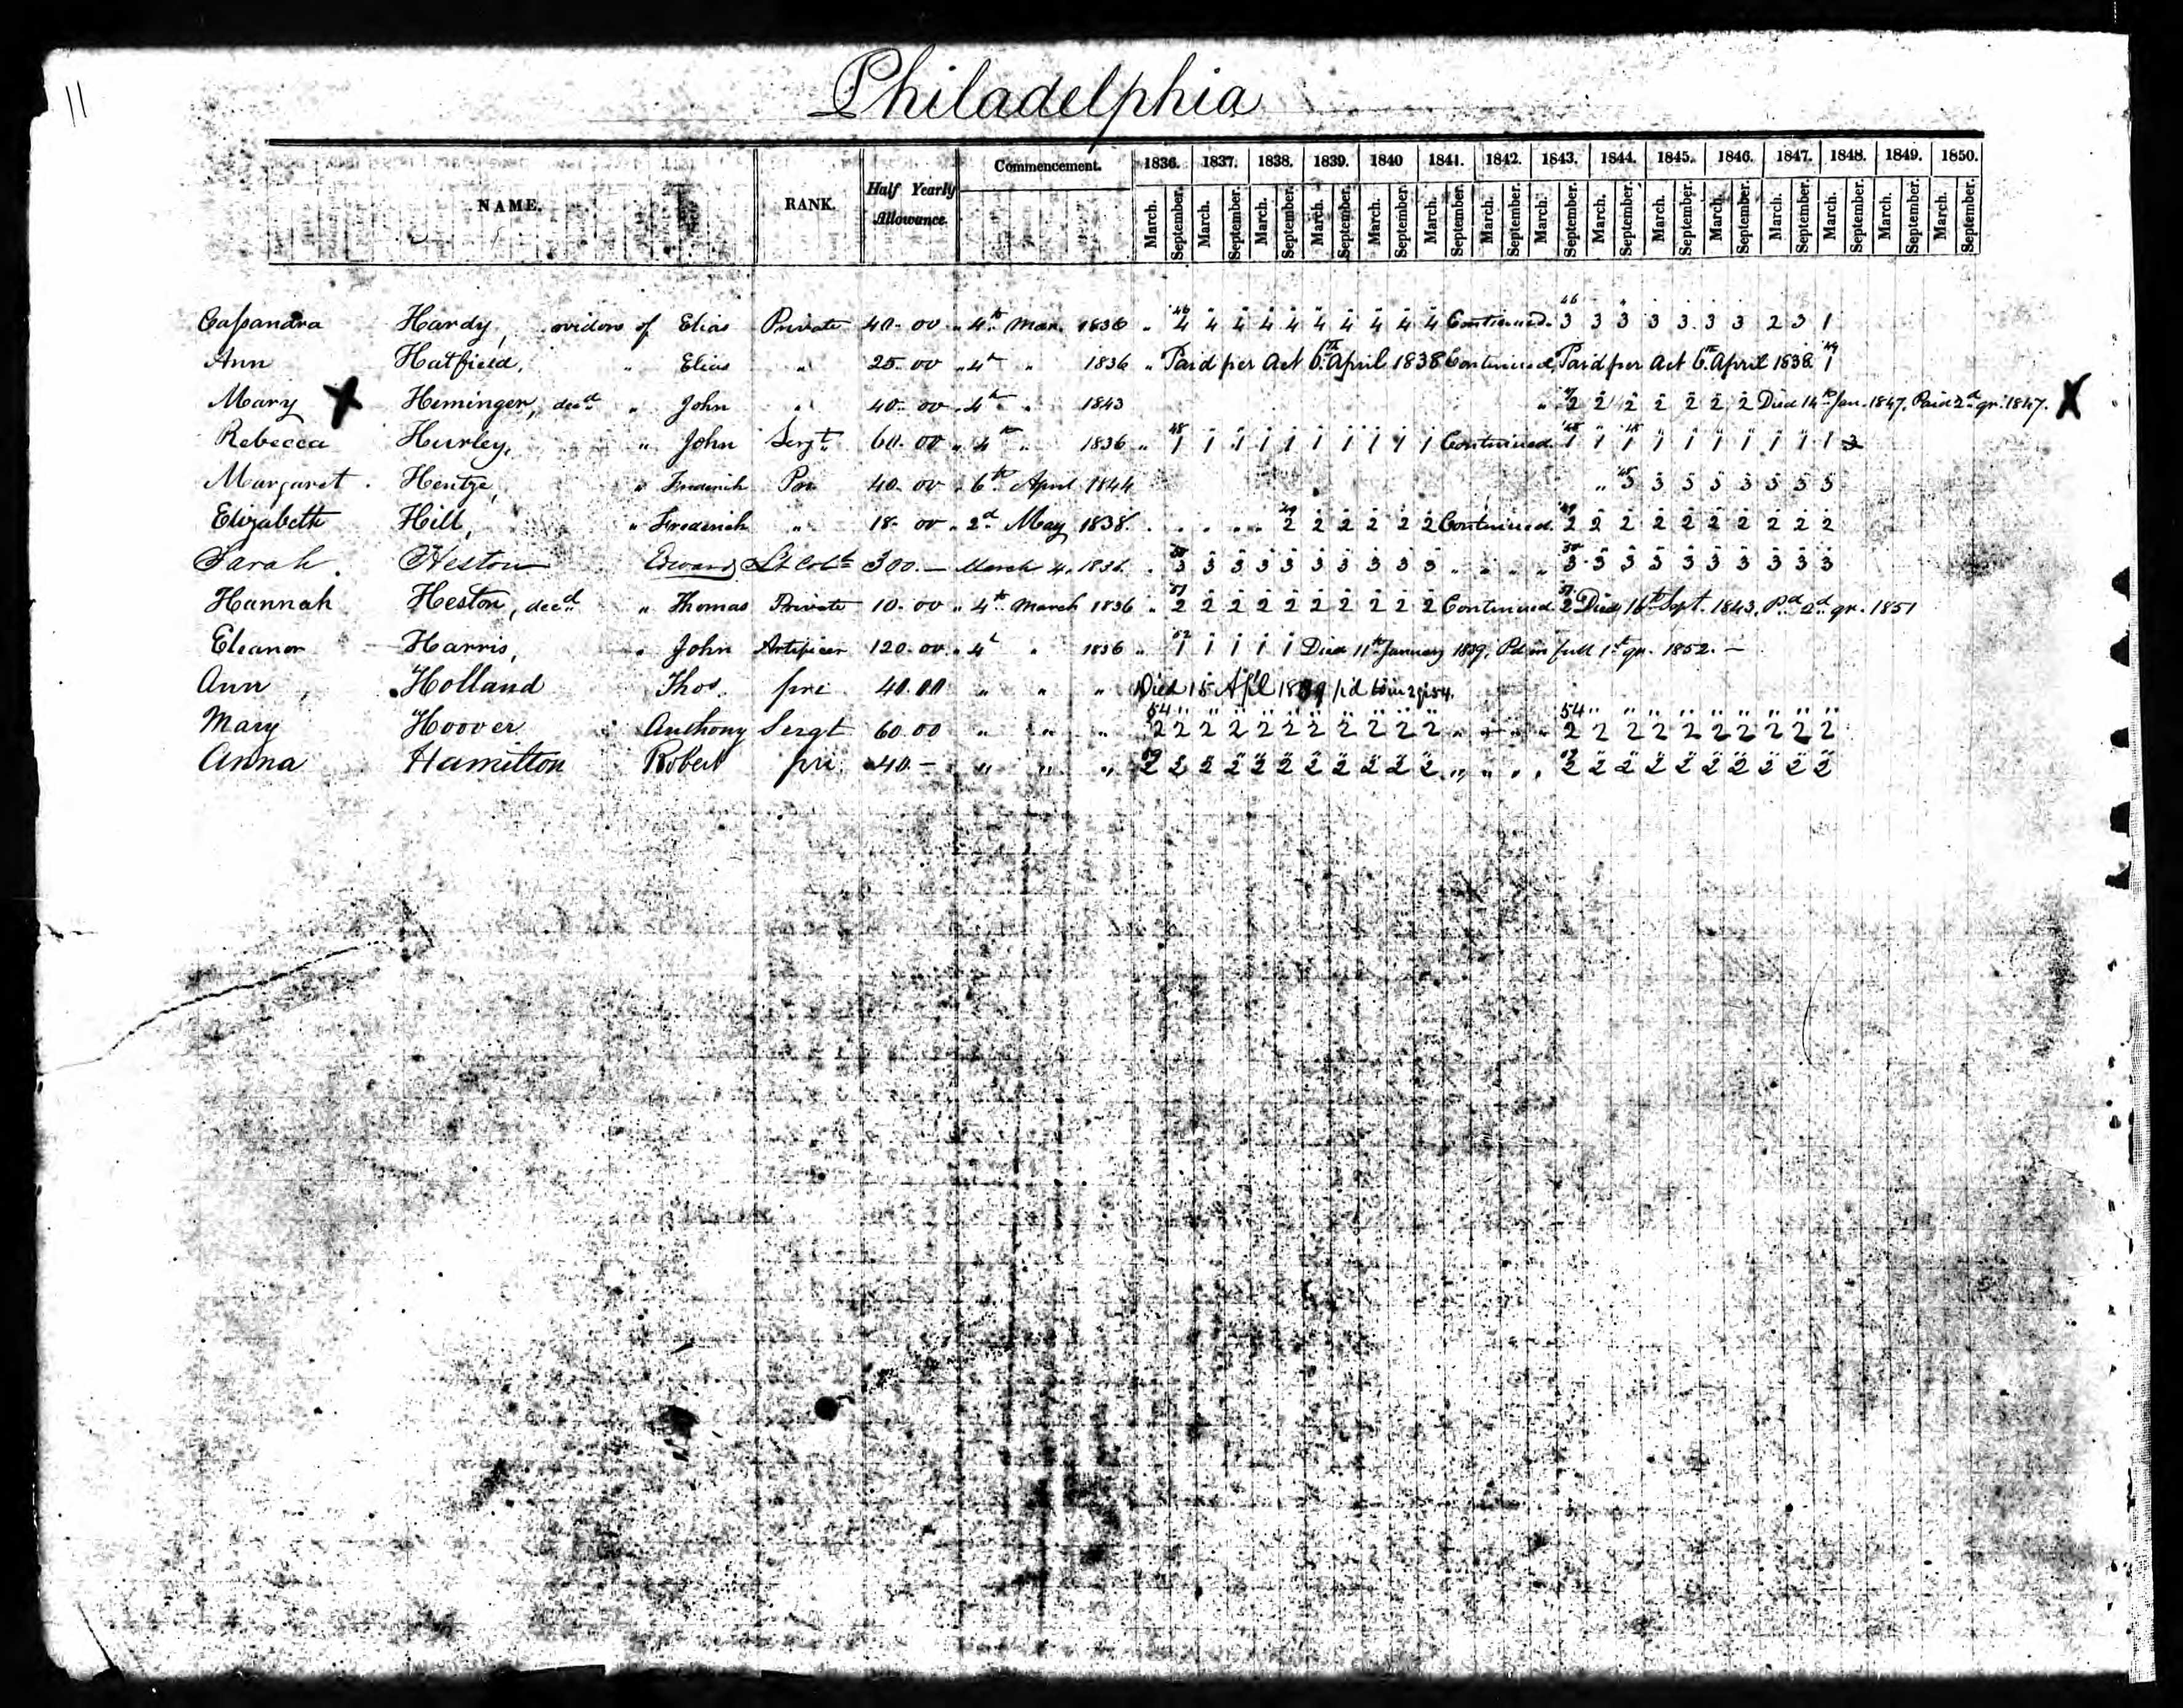 11
Philadelphia
NAME. RANK. Half Yearly Allowance. Commencement. 1836. 1837. 1838. 1839. 1840 1841. 1842. 1843. 1844. 1845. 1846. 1847. 1848. 1849. 1850.
March. September. March. September. March. September. March. September. March. September. March. September. March. September. March. September. March. September. March. September. March. September. March. September. March. September. March. September. March. September.
Cassandra Hardy, widow of Elias Private 40.00 " 4th Mar. 1836 " 46 4 4 4 4 4 4 4 4 4 4 Continued. 46 3 3 3 3 3 3 3 2 3 1
Ann Hatfield, " Elias " 25.00 " 4th " 1836 " Paid per Act 6th April 1838 Continued, Paid per act 6th April 1838 49 1
Mary X Heminger, decd " John " 40.00 " 4th " 1843 " 47 2 2 2 2 2 2 2 Died 14th Jan. 1847. Paid 2d qr. 1847. X
Rebecca Hurley, " John Sergt. 60.00 " 4th " 1836 " 48 1 1 1 1 1 1 1 1 1 1 Continued. 48 1 1 1 1 1 1 1 1 1 1 3
Margaret Hentze, " Frederick Pri 40.00 " 6th April 1844 " 48 3 3 3 3 3 3 3 3
Elizabeth Hill, " Frederick " 18.00 " 2d May 1838. 49 2 2 2 2 2 2 Continued. 49 2 2 2 2 2 2 2 2 2 2
Sarah Heston Edward Lt Colo 300.— March 4. 1836 " 50 3 3 3 3 3 3 3 3 3 3 " " " " 50 3 3 3 3 3 3 3 3 3 3
Hannah Heston, decd " Thomas Private 10.00 " 4th March 1836 " 51 2 2 2 2 2 2 2 2 2 2 Continued 51 2 Died 16th Sept. 1843, Pd 2d qr. 1851
Eleanor Harris, " John Artificer 120.00 " 4th " 1836 " 52 1 1 1 1 1 Died 11th January 1839, Pd in full 1st qr. 1852. —
Ann Holland Thos. pri 40.00 " " " Died 15 Apl 1839 pd 2 qr 54.
Mary Hoover Anthony Sergt 60.00 " " " 54 2 2 2 2 2 2 2 2 2 2 2 " " " " 54 2 2 2 2 2 2 2 2 2 2
Anna Hamilton Robert pri. 40.— " " " 2 2 2 2 2 2 2 2 2 2 2 " " " " 2 2 2 2 2 2 2 2 2 2